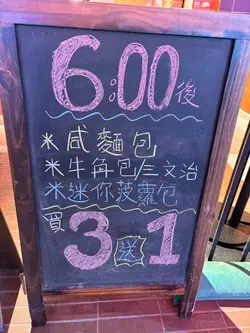 6:00後
米咸麵包
米牛角包三文治
米迷你菠蘿包
買3送1